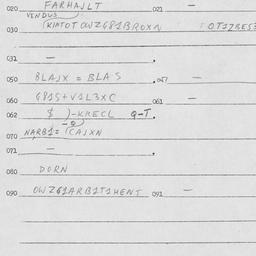 020 FARHAJLT 021 —
VENDUS
030 (KIATOT OWZ681BROXN
031 —
050 BLAJX = BLAS 047 —
060 681S+V1L3XC 061 —
062 $ )-KRECL Q-T.
070 NARB1= (CAJXN
071 —
080 DORN
090 OWZ61ARB1T1HENT 091 —